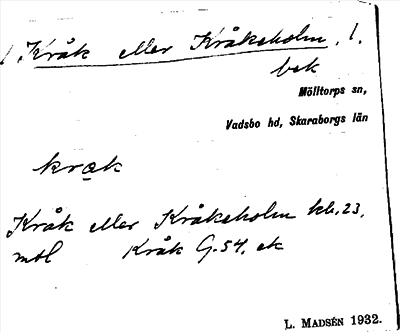 1. Kråk eller Kråkeholm, 1.
bek
Mölltorps sn,
Vadsbo hd, Skaraborgs län
kræk
Kråk eller Kråkeholm kb. 23,
mtl Kråk G. 54, ek
L. MADSÉN 1932.